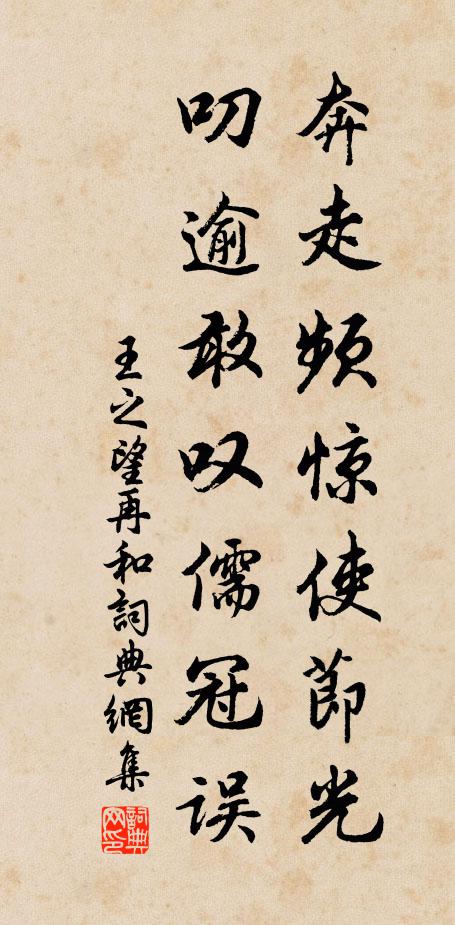 奔走频惊使节光
叨逾敢叹儒冠误
王之望再和詞典網集
詞典網印